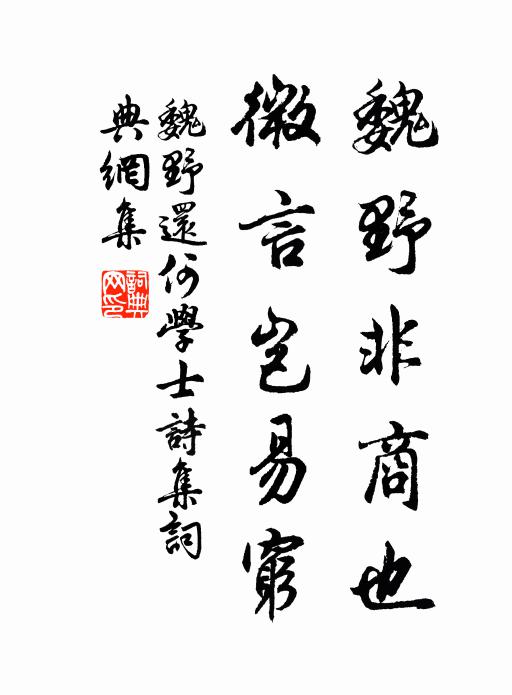 魏野非商也
微言岂易窮
魏野還何學士詩集詞
典網集
詞典网印